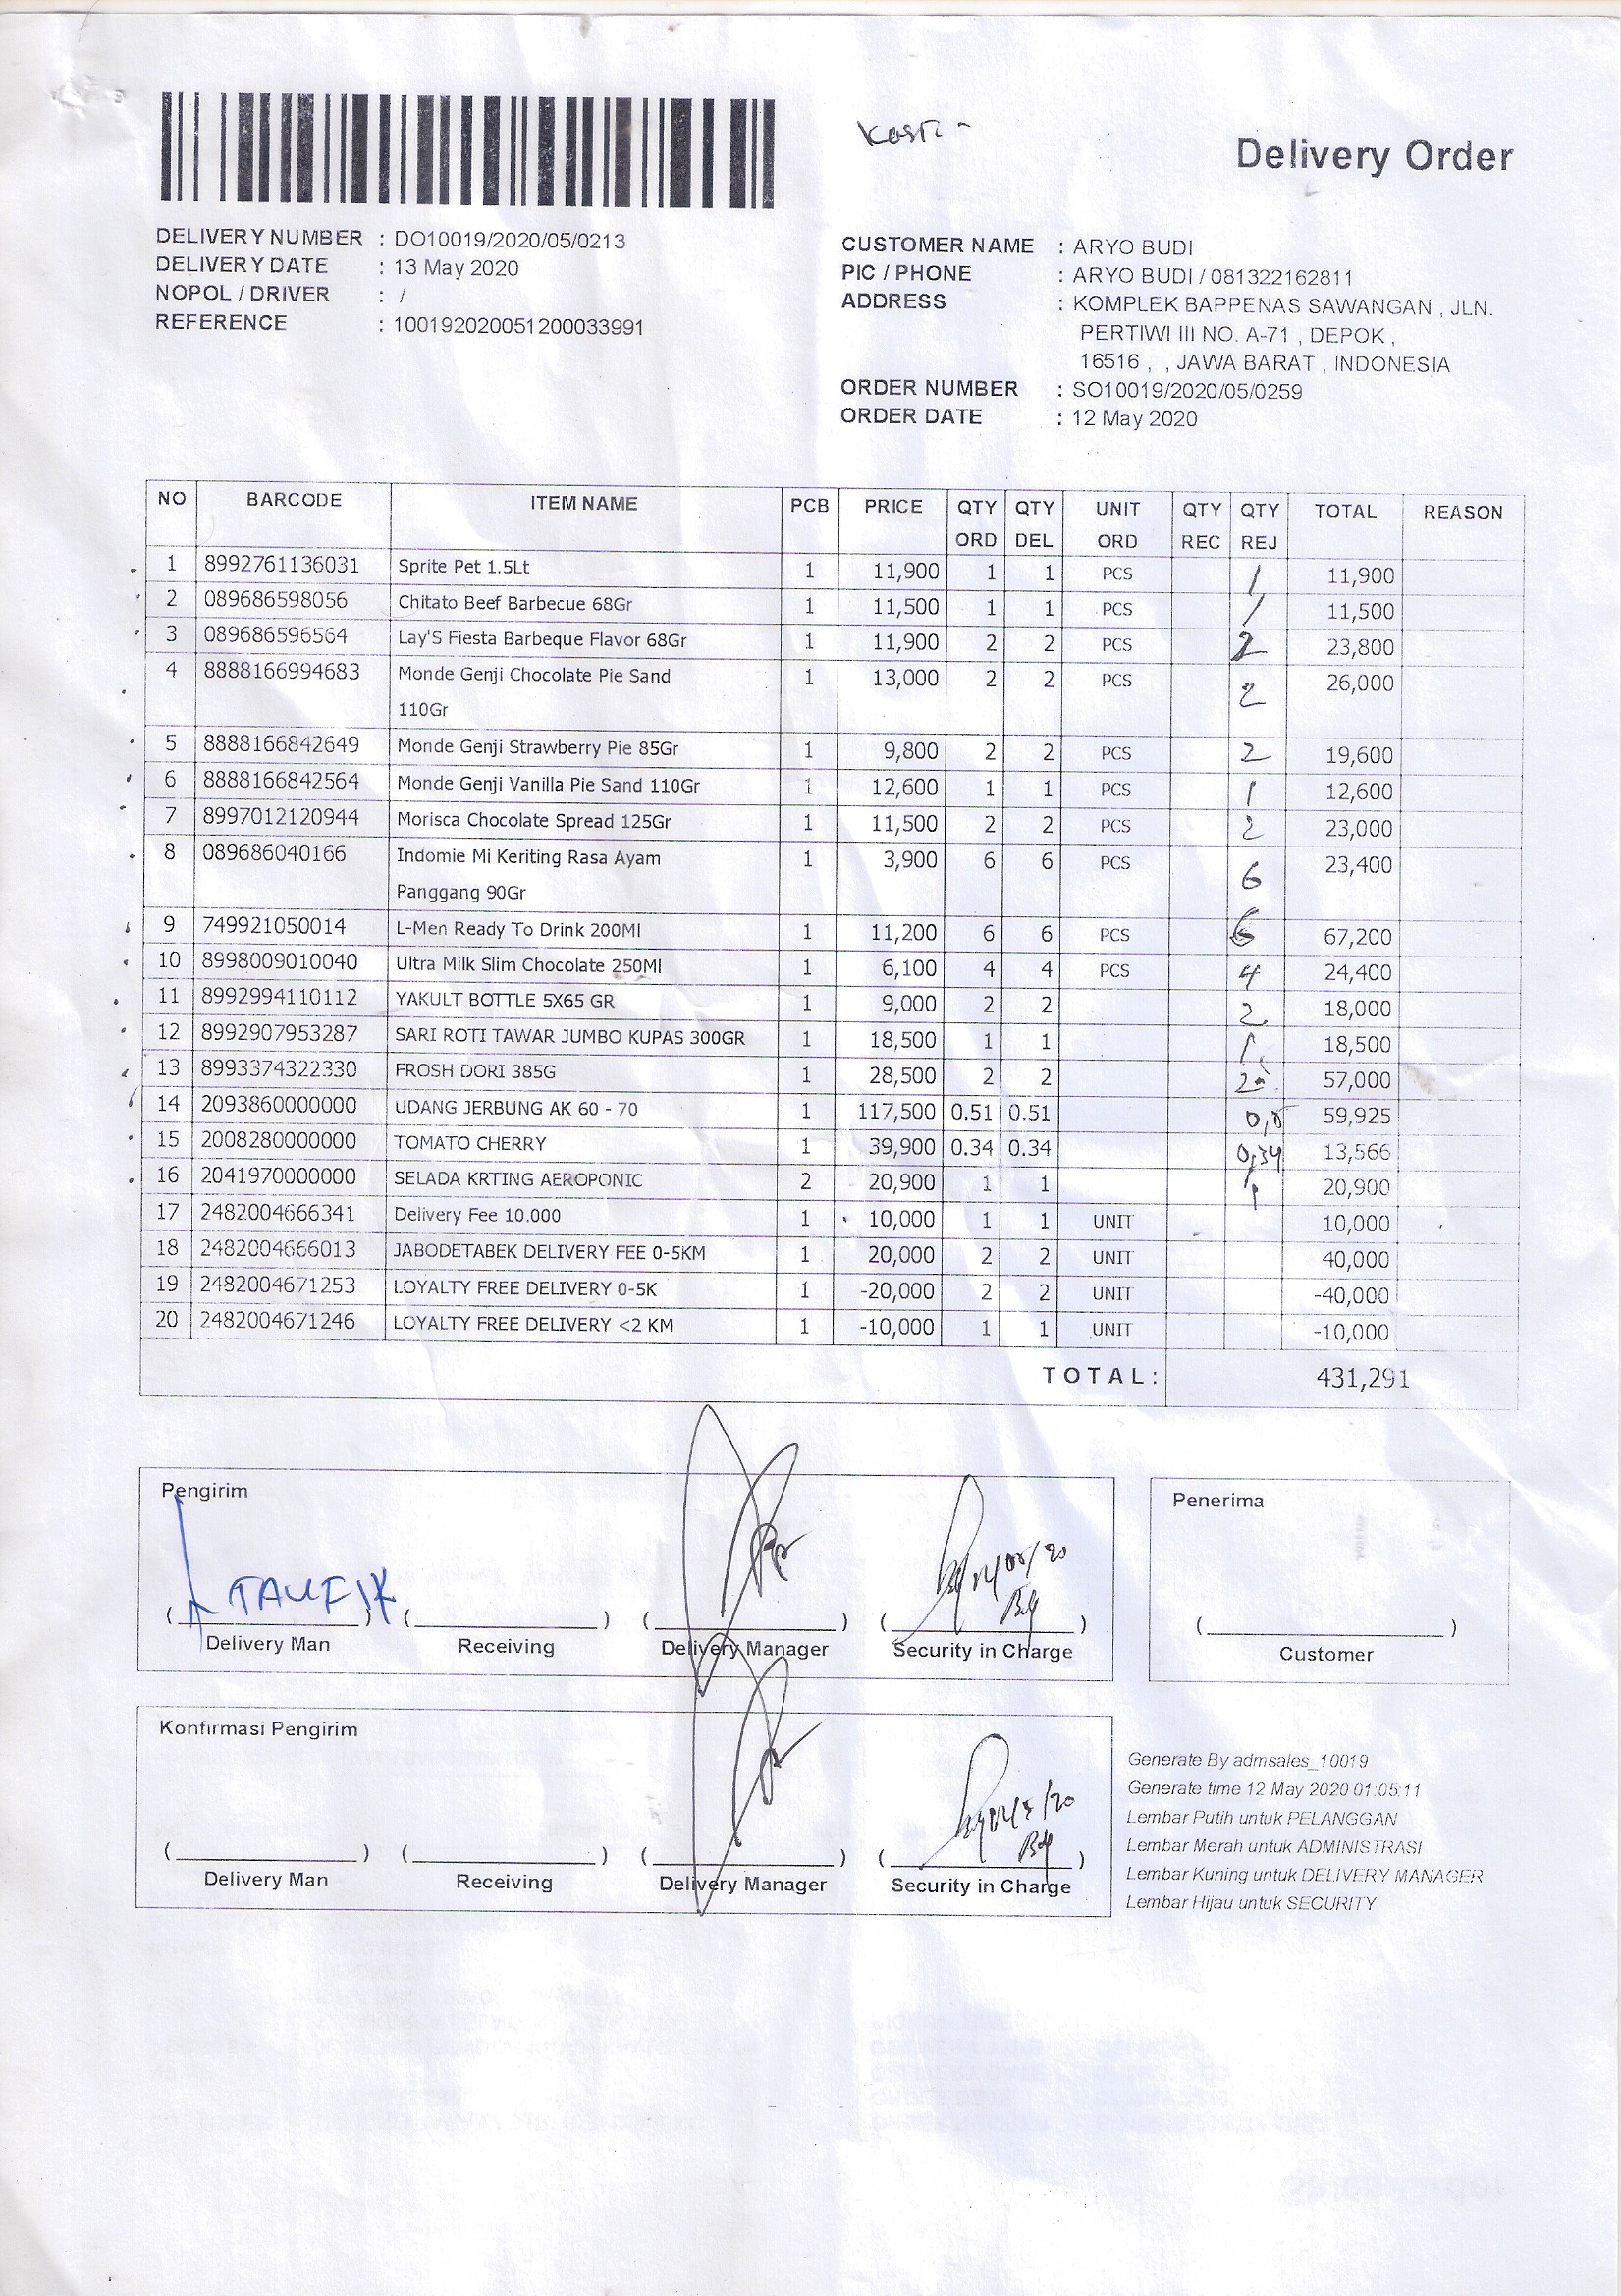 Delivery Order
DELIVERY NUMBER : DO10019/2020/05/0213
DELIVERY DATE : 13 May 2020
NOPOL / DRIVER : /
REFERENCE : 100192020051200033991
CUSTOMER NAME : ARYO BUDI
PIC / PHONE : ARYO BUDI / 081322162811
ADDRESS : KOMPLEK BAPPENAS SAWANGAN , JLN.
PERTIWI III NO. A-71 , DEPOK ,
16516 , , JAWA BARAT , INDONESIA
ORDER NUMBER : SO10019/2020/05/0259
ORDER DATE : 12 May 2020
NO BARCODE ITEM NAME PCB PRICE QTY ORD QTY DEL UNIT ORD QTY REC QTY REJ TOTAL REASON
1 8992761136031 Sprite Pet 1.5Lt 1 11,900 1 1 PCS 1 11,900
2 089686598056 Chitato Beef Barbecue 68Gr 1 11,500 1 1 PCS 1 11,500
3 089686596564 Lay'S Fiesta Barbeque Flavor 68Gr 1 11,900 2 2 PCS 2 23,800
4 8888166994683 Monde Genji Chocolate Pie Sand 1 13,000 2 2 PCS 2 26,000
110Gr
5 8888166842649 Monde Genji Strawberry Pie 85Gr 1 9,800 2 2 PCS 2 19,600
6 8888166842564 Monde Genji Vanilla Pie Sand 110Gr 1 12,600 1 1 PCS 1 12,600
7 8997012120944 Morisca Chocolate Spread 125Gr 1 11,500 2 2 PCS 2 23,000
8 089686040166 Indomie Mi Keriting Rasa Ayam 1 3,900 6 6 PCS 6 23,400
Panggang 90Gr
9 749921050014 L-Men Ready To Drink 200Ml 1 11,200 6 6 PCS 6 67,200
10 8998009010040 Ultra Milk Slim Chocolate 250Ml 1 6,100 4 4 PCS 4 24,400
11 8992994110112 YAKULT BOTTLE 5X65 GR 1 9,000 2 2 2 18,000
12 8992907953287 SARI ROTI TAWAR JUMBO KUPAS 300GR 1 18,500 1 1 1 18,500
13 8993374322330 FROSH DORI 385G 1 28,500 2 2 2 57,000
14 2093860000000 UDANG JERBUNG AK 60 - 70 1 117,500 0.51 0.51 59,925
15 2008280000000 TOMATO CHERRY 1 39,900 0.34 0.34 0,34 13,566
16 2041970000000 SELADA KRTING AEROPONIC 2 20,900 1 1 1 20,900
17 2482004666341 Delivery Fee 10.000 1 10,000 1 1 UNIT 10,000
18 2482004666013 JABODETABEK DELIVERY FEE 0-5KM 1 20,000 2 2 UNIT 40,000
19 2482004671253 LOYALTY FREE DELIVERY 0-5K 1 -20,000 2 2 UNIT -40,000
20 2482004671246 LOYALTY FREE DELIVERY <2 KM 1 -10,000 1 1 UNIT -10,000
TOTAL: 431,291
Pengirim
TAUFIK
( ) ( ) ( ) ( )
Delivery Man Receiving Delivery Manager Security in Charge
Penerima
( )
Customer
Konfirmasi Pengirim
( ) ( ) ( ) ( )
Delivery Man Receiving Delivery Manager Security in Charge
Generate By admsales_10019
Generate time 12 May 2020 01:05:11
Lembar Putih untuk PELANGGAN
Lembar Merah untuk ADMINISTRASI
Lembar Kuning untuk DELIVERY MANAGER
Lembar Hijau untuk SECURITY